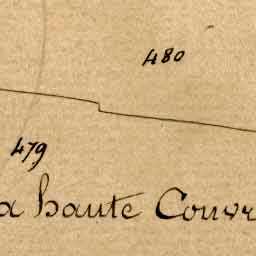 480
479
a haute Couvr